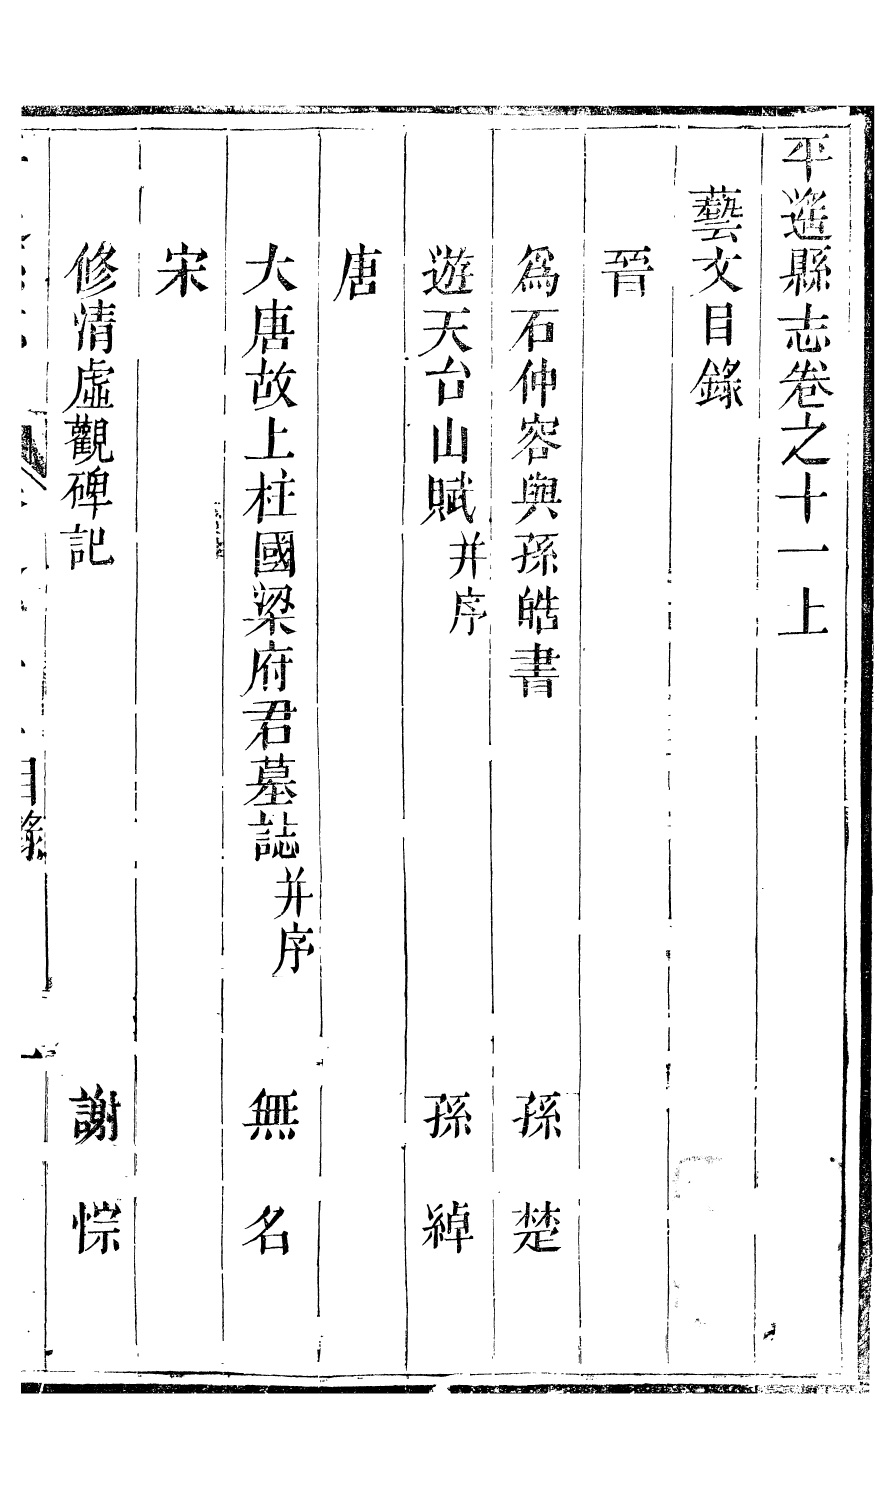 平遙縣志卷之十一上
藝文目錄
晉
爲石仲容與孫皓書 孫楚
遊天台山賦并序 孫綽
唐
大唐故上柱國梁府君墓誌并序 無名
宋
修清虛觀碑記 謝悰
目錄 一